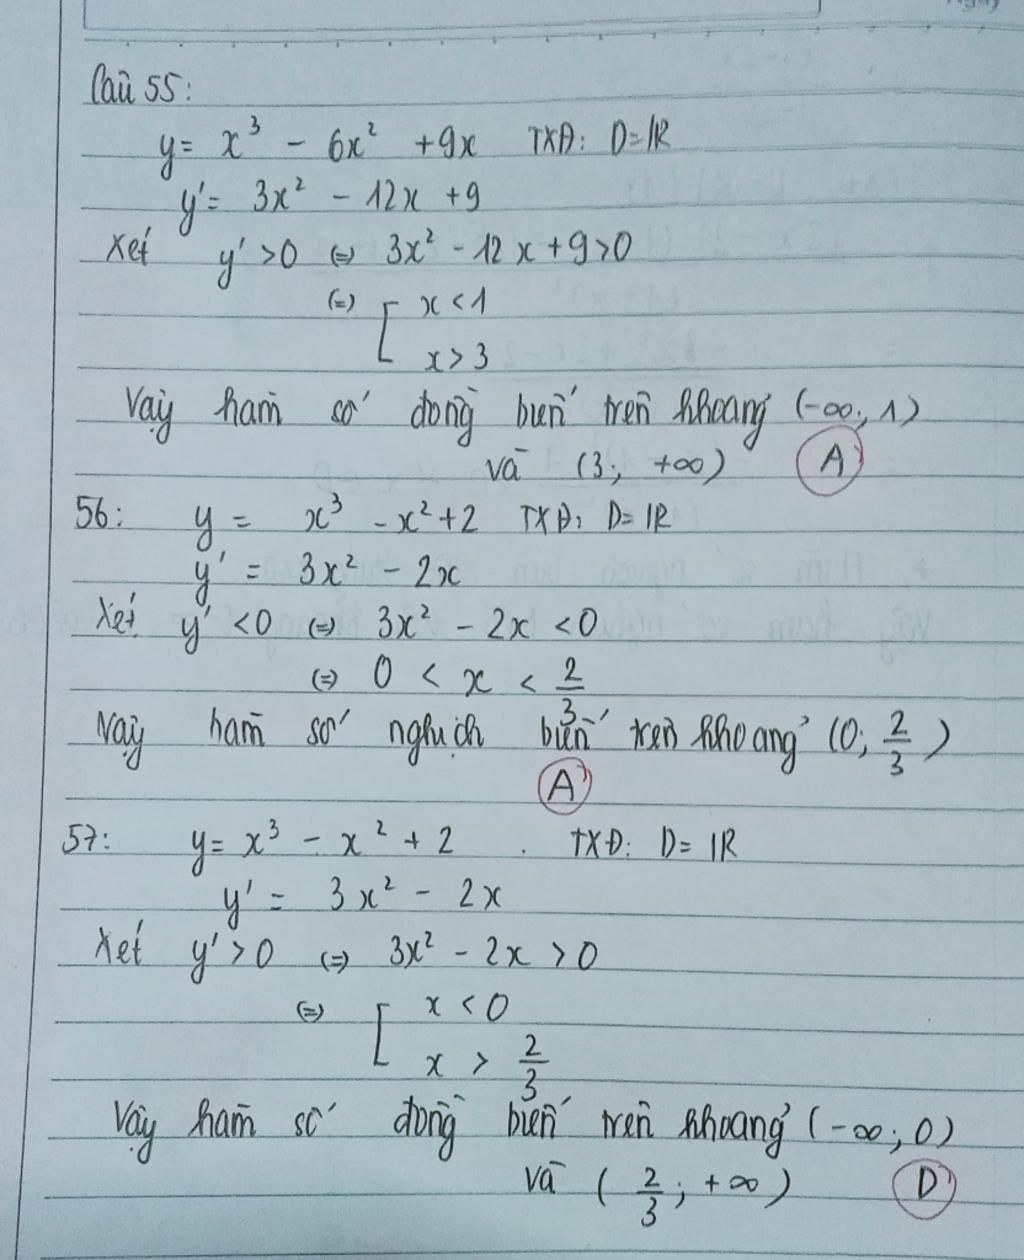 Câu 55:
y = x³ - 6x² + 9x TXĐ: D = ℝ
y' = 3x² - 12x + 9
Xét y' > 0 (=) 3x² - 12x + 9 > 0
(=) [ x < 1
x > 3
Vậy hàm số đồng biến trên khoảng (-∞; 1)
và (3; +∞) A
56: y = x³ - x² + 2 TXĐ: D = ℝ
y' = 3x² - 2x
Xét y' < 0 (=) 3x² - 2x < 0
(=) 0 < x < 2/3
Vậy hàm số nghịch biến trên khoảng (0; 2/3)
A
57: y = x³ - x² + 2 . TXĐ: D = ℝ
y' = 3x² - 2x
Xét y' > 0 (=) 3x² - 2x > 0
(=) [ x < 0
x > 2/3
Vậy hàm số đồng biến trên khoảng (-∞; 0)
và (2/3; +∞) D